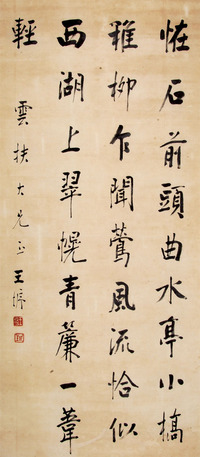 怪石前頭曲水亭小橋
稚柳乍聞鶯風流恰似
西湖上翠幌青簾一葦
輕
雲扶大兄正 王垿